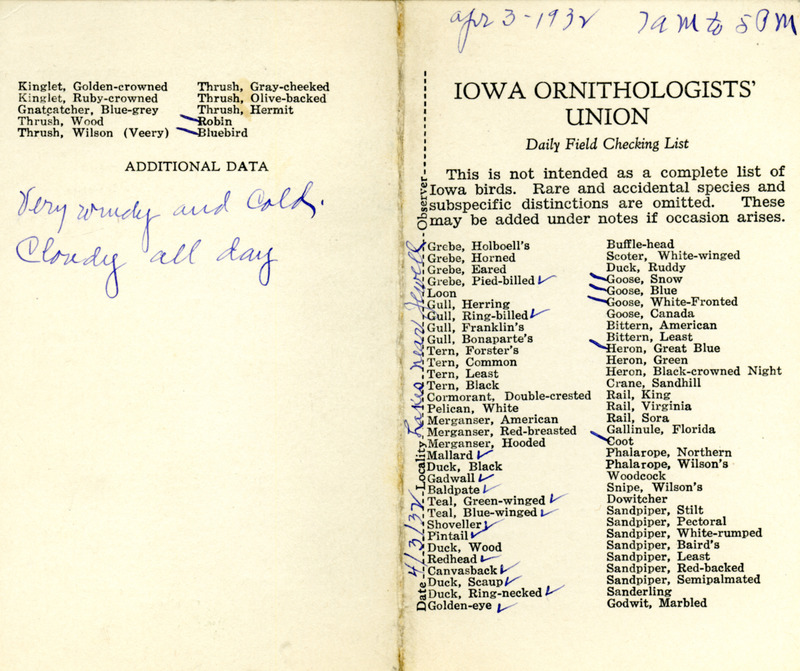 Kinglet, Golden-crowned
Kinglet, Ruby-crowned
Gnatcatcher, Blue-grey
Thrush, Wood
Thrush, Wilson (Veery)
Thrush, Gray-cheeked
Thrush, Olive-backed
Thrush, Hermit
Robin
Bluebird
ADDITIONAL DATA
Very windy and Cold.
Cloudy all day
Apr 3-1932 7 AM to 5 PM
IOWA ORNITHOLOGISTS'
UNION
Daily Field Checking List
This is not intended as a complete list of
Iowa birds. Rare and accidental species and
subspecific distinctions are omitted. These
may be added under notes if occasion arises.
Date 4/3/32 Locality Lakes near Jewell Observer
Grebe, Holboell's
Grebe, Horned
Grebe, Eared
Grebe, Pied-billed ✓
Loon
Gull, Herring
Gull, Ring-billed ✓
Gull, Franklin's
Gull, Bonaparte's
Tern, Forster's
Tern, Common
Tern, Least
Tern, Black
Cormorant, Double-crested
Pelican, White
Merganser, American
Merganser, Red-breasted
Merganser, Hooded
Mallard ✓
Duck, Black
Gadwall ✓
Baldpate ✓
Teal, Green-winged ✓
Teal, Blue-winged ✓
Shoveller ✓
Pintail ✓
Duck, Wood
Redhead ✓
Canvasback ✓
Duck, Scaup ✓
Duck, Ring-necked ✓
Golden-eye ✓
Buffle-head
Scoter, White-winged
Duck, Ruddy
Goose, Snow
Goose, Blue
Goose, White-Fronted
Goose, Canada
Bittern, American
Bittern, Least
Heron, Great Blue
Heron, Green
Heron, Black-crowned Night
Crane, Sandhill
Rail, King
Rail, Virginia
Rail, Sora
Gallinule, Florida
Coot
Phalarope, Northern
Phalarope, Wilson's
Woodcock
Snipe, Wilson's
Dowitcher
Sandpiper, Stilt
Sandpiper, Pectoral
Sandpiper, White-rumped
Sandpiper, Baird's
Sandpiper, Least
Sandpiper, Red-backed
Sandpiper, Semipalmated
Sanderling
Godwit, Marbled